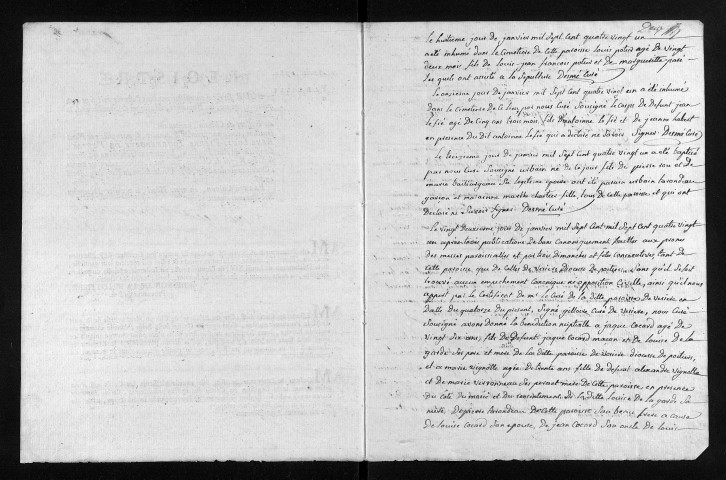 Deux
Le huitième jour de janvier mil sept cent quatre vingt un
a été inhumé dans le cimetière de cette paroisse louis poters agé de vingt
deux mois fils de louis jean francois poters et de margueritte
lesquels ont assisté a la sépulture Desmé Curé
Le onzieme jour de janvier mil sept cent quatre vingt un a été inhumé
dans le cimetière de ce lieu par nous Curé soussigné le corps de defunt jean
le fié agé de cinq ans trois mois, fils d'antoinne le fié et de jeanne habert
en presence du dit antoinne le fié qui a declaré ne savoir signer Desmé Curé
Le treizieme jour de janvier mil sept cent quatre vingt un a été baptisé
par nous Curé soussigné urbain né de ce jour fils de pierre et de
marie sa legitime epouse ont été parain urbain
garcon et maraine marthe chartier fille, tous de cette paroisse et qui ont
declaré ne savoir signer Desmé Curé
Le vingt deuxieme jour de janvier mil sept cent mil sept cent quatre vingt
un apres trois publications de ban canoniquement faittes aux prones
des messes paroissialles et par trois dimanches et fetes consecutives, tant de
cette paroisse, que de celles de diocese de poitiers sans qu'il se soit
trouvé aucun empechement canonique ni opposition civille, ainsi qu'il nous
apport par le certificat de mr le curé de la ditte paroisse de en
datte du quatorze du present, signé Curé de nous Curé
soussigné avons donné la benediction nuptialle a jaque Cocard agé de
vingt six ans, fils de defunt jaque Cocard macon et de louise de la
garde ses pere et mere de la ditte paroisse de diocese de poitiers,
et a marie vignolle agée de trente ans fille de defunt alexandre vignolle
et de marie ses pere et mere de cette paroisse en presence
du coté du marié et du consentement de la ditte louise de la garde sa
mere, de pierre de cette paroisse son beau frere a cause
de louise Cocard son epouse, de jean Cocard son oncle de louis